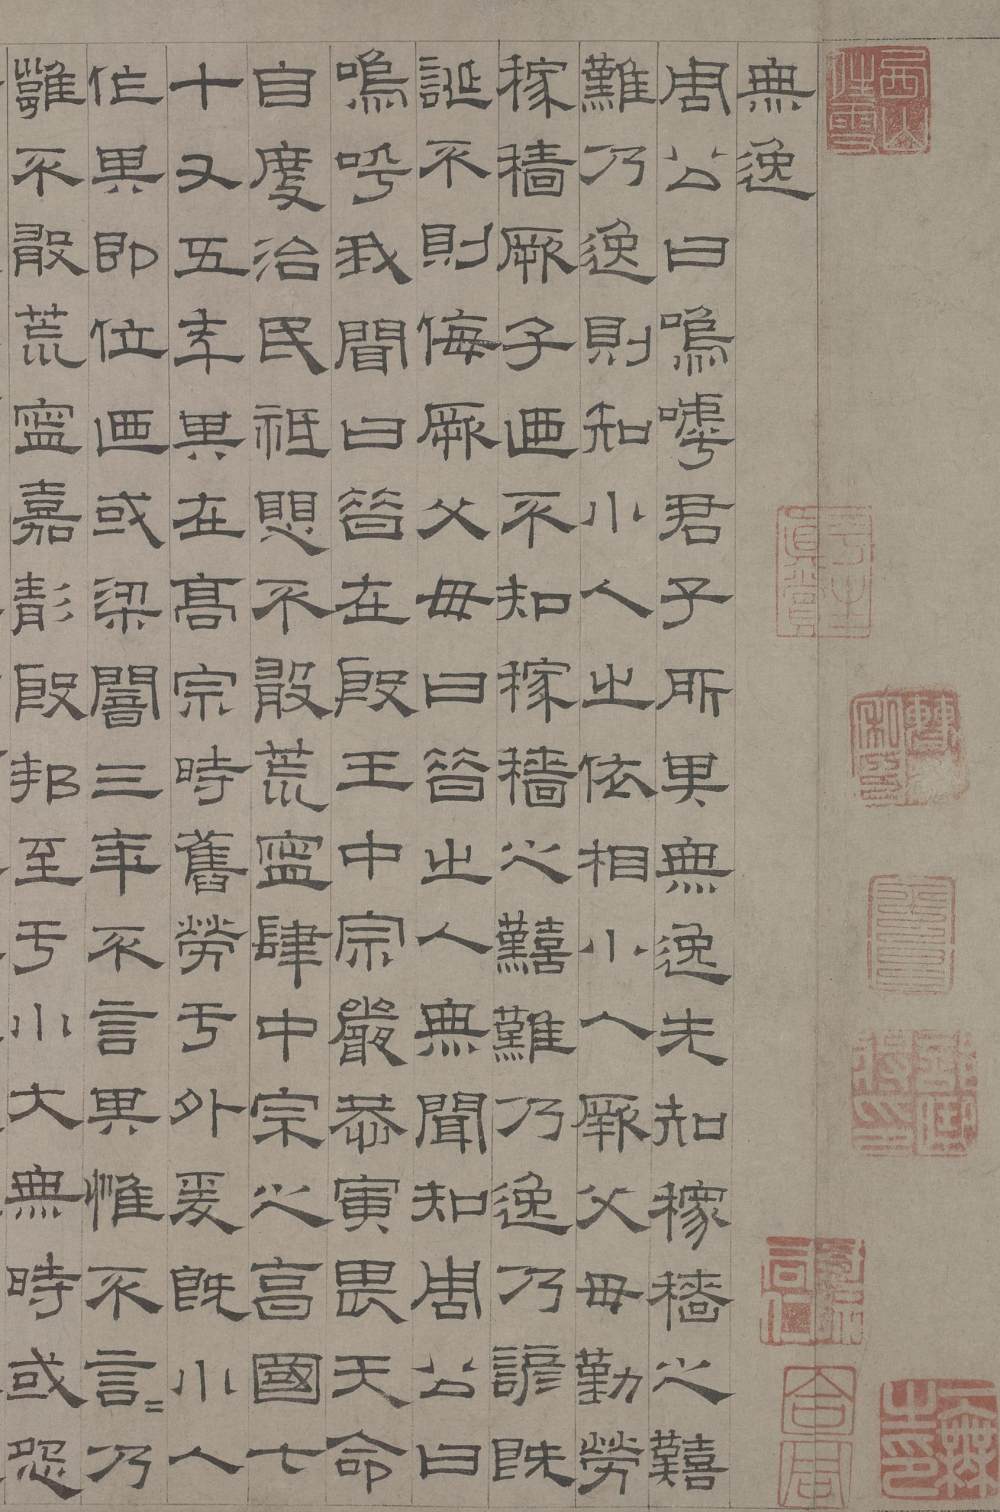 無逸
周公曰嗚嘑君子所其無逸先知稼穡之囏
難乃逸則知小人之依相小人厥父母勤勞
稼穡厥子迺不知稼穡之囏難乃逸乃諺既
誕不則侮厥父母曰昔之人無聞知周公曰
嗚呼我聞曰昔在殷王中宗嚴恭寅畏天命
自度治民祗愳不敢荒寧肆中宗之享國七
十又五年其在高宗時舊勞于外爰既小人
作其即位迺或梁闇三年不言其惟不言=乃
雍不敢荒寧嘉靖殷邦至于小大無時或怨
合同